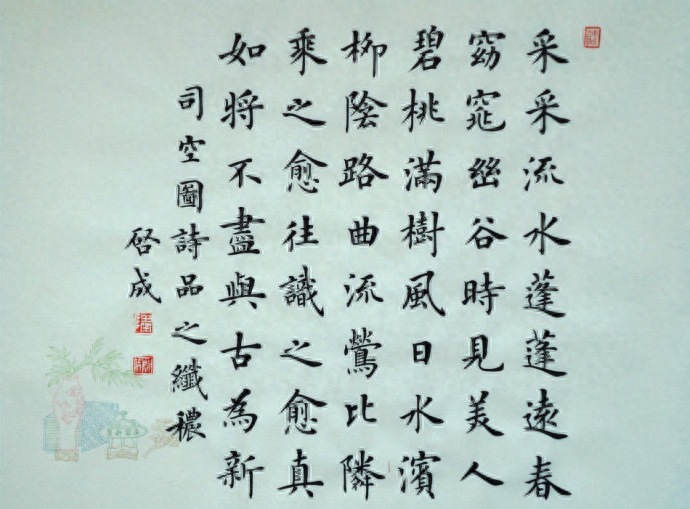 采采流水蓬蓬遠春
窈窕幽谷時見美人
碧桃滿樹風日水濱
柳陰路曲流鶯比隣
乘之愈往識之愈真
如將不盡與古為新
司空圖詩品之纖穠
啓成